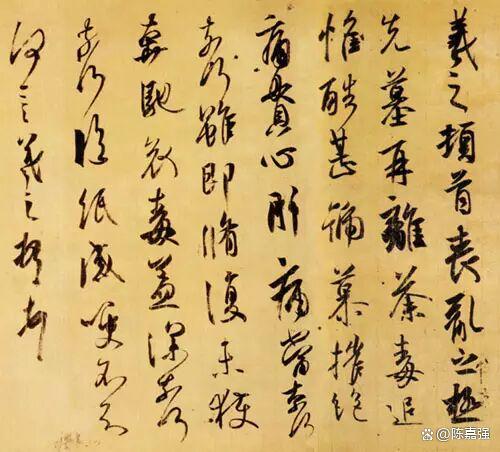 羲之頓首喪亂之極
先墓再離荼毒追
惟酷甚號慕摧絕
痛貫心肝痛當奈何
奈何雖即脩復未獲
奔馳哀毒益深奈何
奈何臨紙感哽不知
何言羲之頓首頓首
@陈嘉强